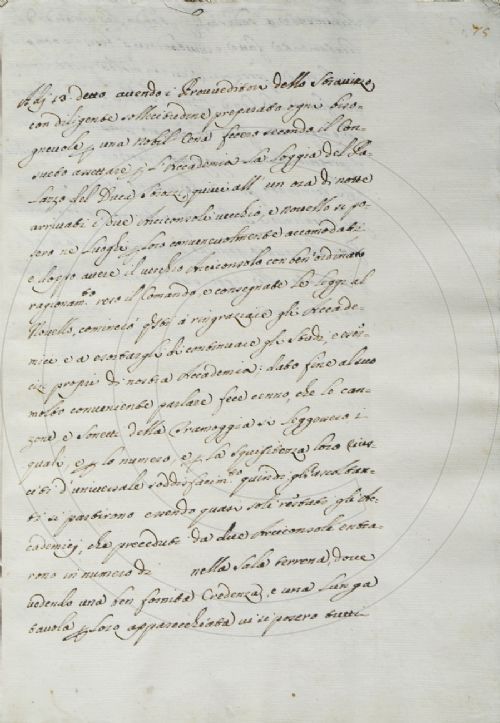 75
Adj 13 detto avendo i Provveditori dello Stravizzo
con diligente sollecitudine preparata ogni biso-
gnevole p una nobil Cena fecero secondo il Con-
sueto assettare p l'Accademia la Loggia del Pa-
lazzo del Duca Strozzi, quivi all' un ora di notte
arrivati i due Arciconsoli vecchio, e novello si po-
sero ne Luoghi p loro convenevolmente accomodati
e dopo avere il vecchio Arciconsolo con ben ordinato
ragionam.to reso il Comando, e consegnate le leggi al
Novello, cominciò q.sti à ringraziare gli Accade-
mici e a esortargli di continuare gli studi, e eser-
cizi propri di nostra Accademia: dato fine al suo
molto conveniente parlare fece cenno, che le can-
zone e sonetti della Tramoggia si leggessero i
quali, e p lo numero e p la squisitezza loro
d'universale soddisfacim.to quindi gli ascoltan-
ti si partirono essendo quasi soli restati gli Ac-
cademici, che preceduti da due Arciconsoli entra-
rono in numero di nella Sala terrena, dove
vedendo una ben fornita Credenza, e una lunga
tavola p loro apparecchiata vi si posero tutti